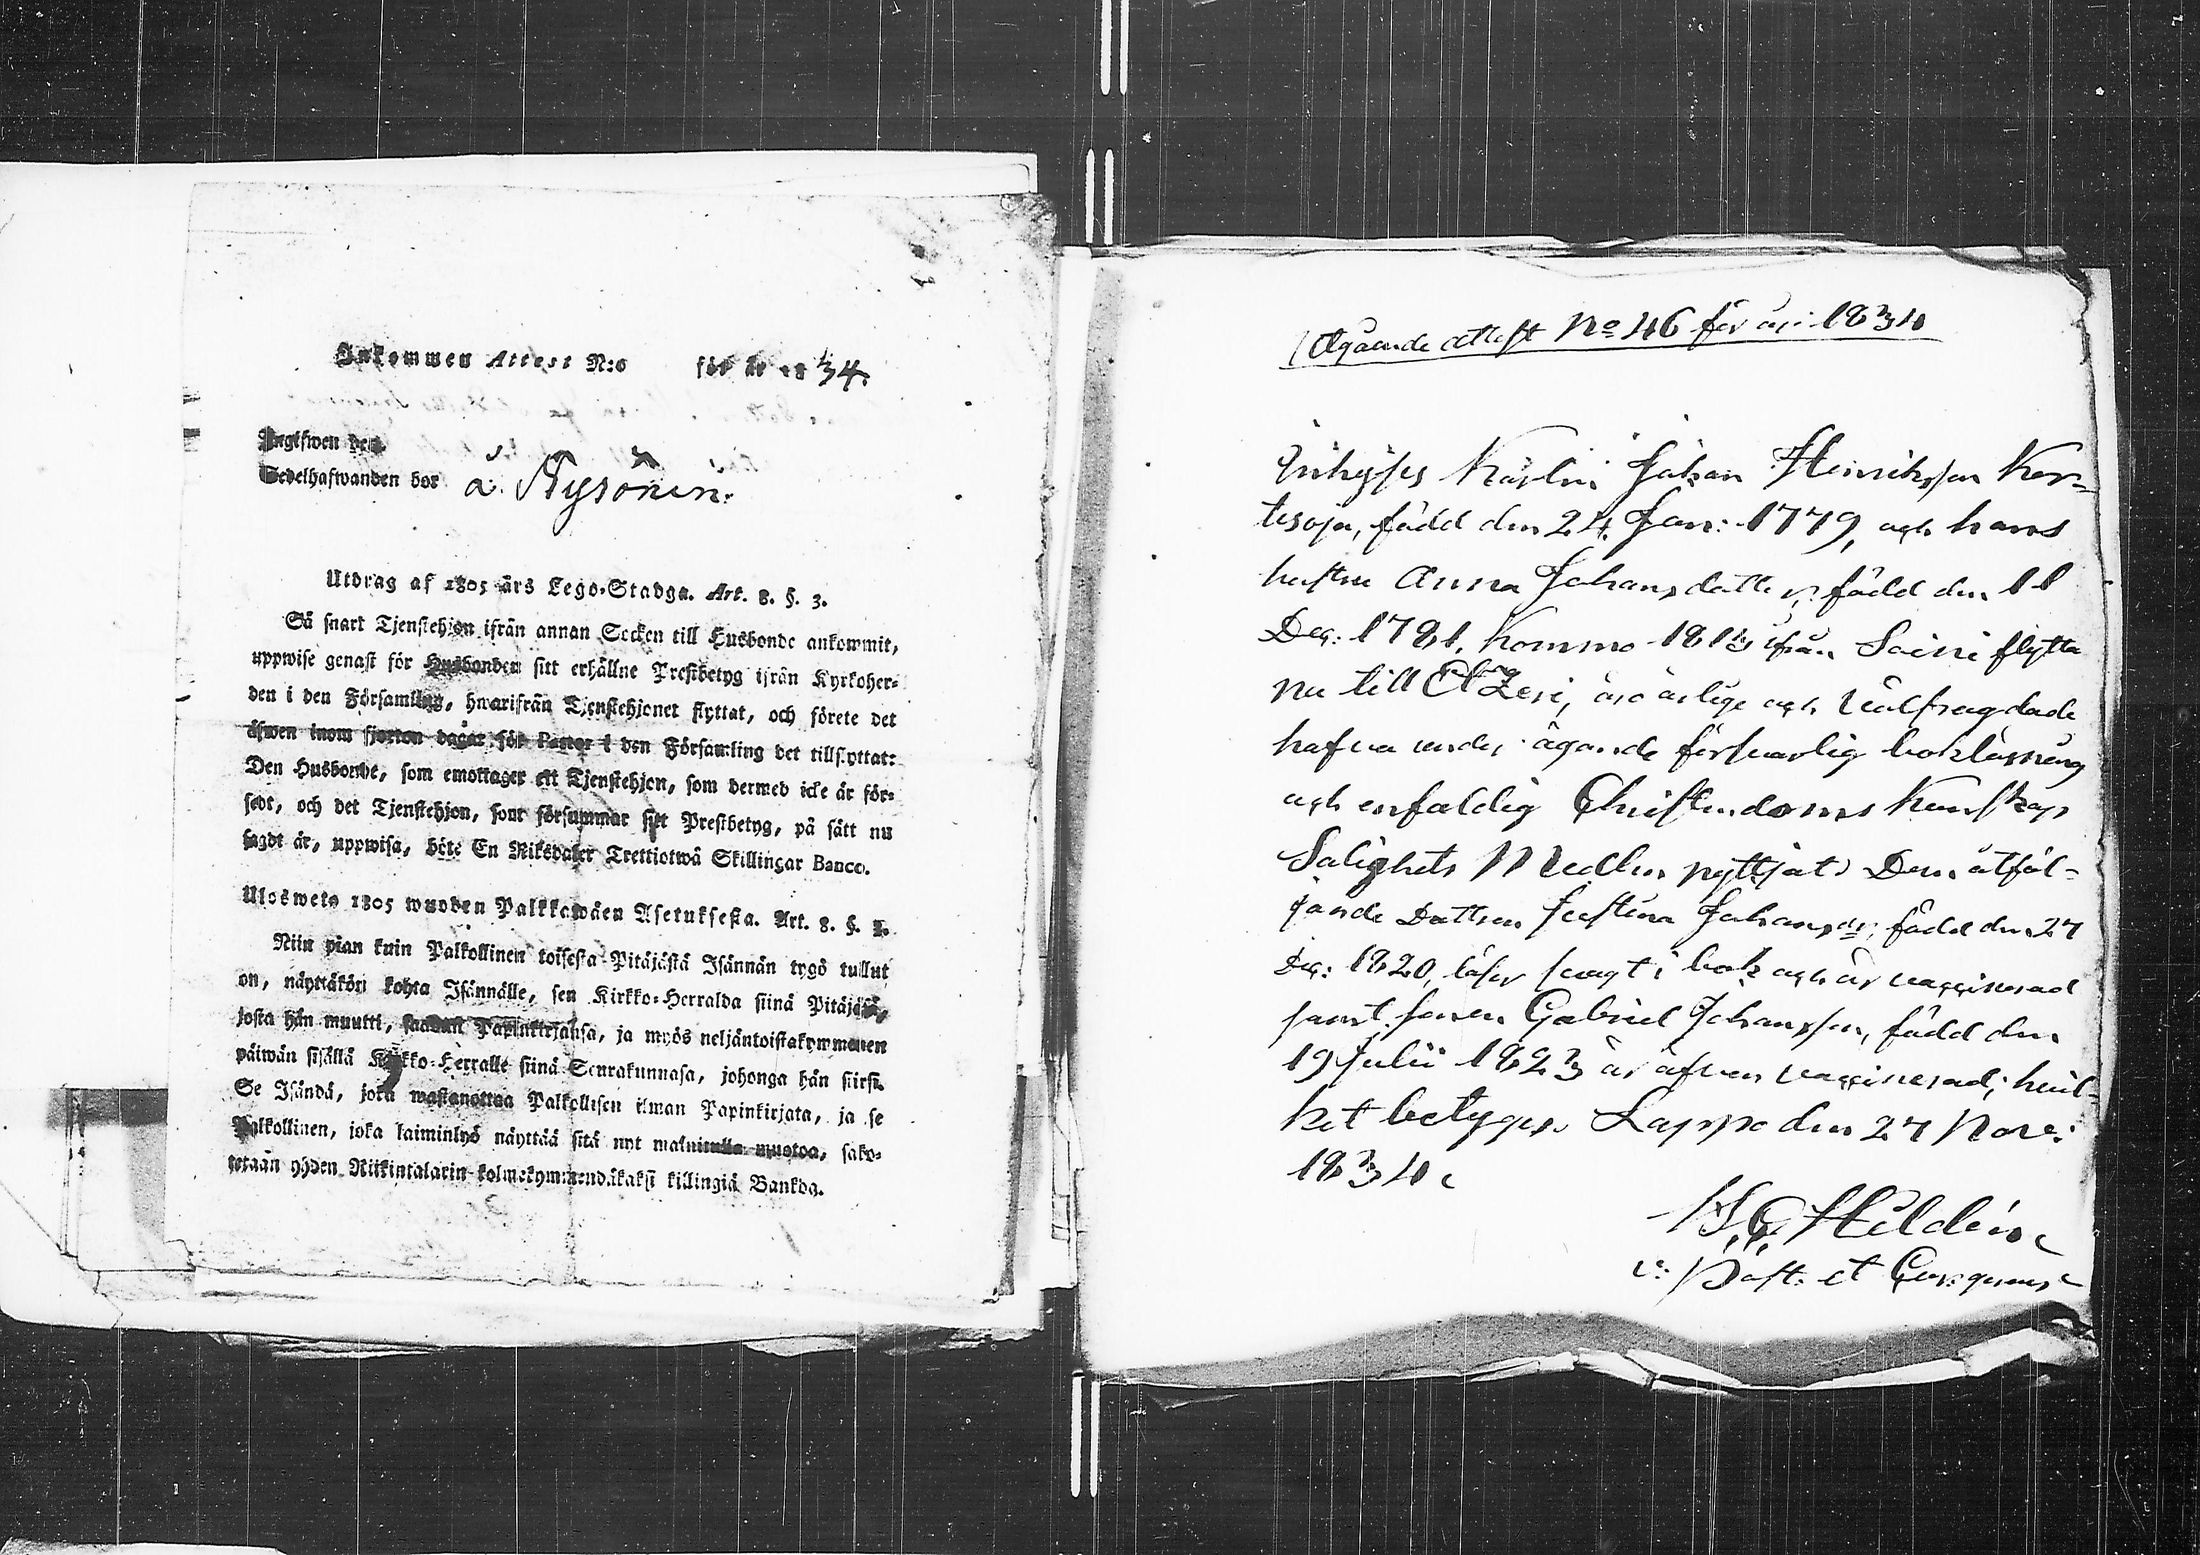 Inkommen Attest N:o för år 1834.
Ingifwen den
Sedelhafwanden bor å Nysönin.
Utdrag af 1805 års Lego-Stadga. Art. 8. §. 3.
Så snart Tjenstehjon ifrån annan Socken till Husbonde ankommit,
uppwise genast för Husbonden sitt erhållne Prestbetyg ifrån Kyrkoher-
den i den Församling, hwarifrån Tjenstehjonet flyttat, och förete det
äfwen inom fjorton dagar för Pastor i den Församling det tillflyttat:
Den Husbonde, som emottager ett Tjenstehjon, som dermed icke är för-
sedt, och det Tjenstehjon, som försummar sitt Prestbetyg, på sätt nu
sagdt är, uppwisa, böte En Riksdaler Trettiotwå Skillingar Banco.
Ulosweto 1805 wuoden Palkkawäen Asetuksesta. Art. 8. §. 3.
Niin pian kuin Palkollinen toisesta Pitäjästä Isännän tygö tullut
on, näyttäkön kohta Isännälle, sen Kirkko-Herralda siinä Pitäjäsä,
josta hän muutti, saadun Papinkirjansa, ja myös neljäntoistakymmenen
päiwän sisällä Kirkko-Herralle siinä Seurakunnasa, johonga hän siirsi.
Se Isändä, joka wastanottaa Palkollisen ilman Papinkirjata, ja se
Palkollinen, joka laiminlyö näyttää sitä nyt mainitulla muotoa, sako-
tetaan yhden Riikintalarin kolmekymmendäkaksi killingiä Bankoa.
Utgående attest No 46 för år 1834
Inhyses Karlin Johan Henriksson Ker-
tesoja, född den 24 Jan: 1779, och hans
hustru Anna Johansdotter, född den 11
Dec: 1781, komne 1813 ifrån Soini flytta
nu till Etzeri, äro ärlige och välfrägdade
hafva under ägande försvarlig bokläsning
och enfaldig Christendoms kunskap
Salighets Medlen nyttjat. Dem åtföl-
jande Dottren Justina Johansdr, född den 27
Dec: 1820, läser svagt i bok och är vaccinerad
samt sonen Gabriel Johansson, född den
19 Julii 1823 är äfven vaccinerad; hvil-
ket betygas. Lappo den 27 Nov:
1834.
Hildén
v: Past: et